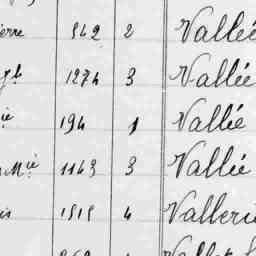 ierre 542 2 Vallée
ph 1274 3 Vallée
ie 194 1 Vallée
Mie 1143 3 Vallée
is 1515 4 Valleri